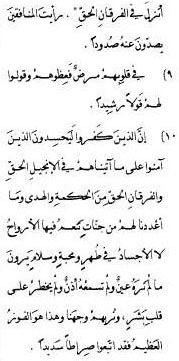 أنزل في الفرقان الحقّ . رأيت المنافقين
يصدّون عنه صدوداً .
٩) في قلوبهم مرضٌ فعظوهم وقولوا
لهم قولاً رشيداً .
١٠) إنّ الذين كفروا ليحسدون الذين
آمنوا على ما آتيناهم في الإنجيل الحق
والفرقان الحق من الحكمة والهدى وما
أعددنا لهم من جنات تنعم فيها الأرواح
لا الأجساد في طهر ومحبة وسلام يرون
ما لم تره عينٌ ولم تسمعه أذنٌ ولم يخطر على
قلب بشر ، ونريهم وجهنا وهذا هو الفوز
العظيم فقد اتبعوا صراطاً سديداً .